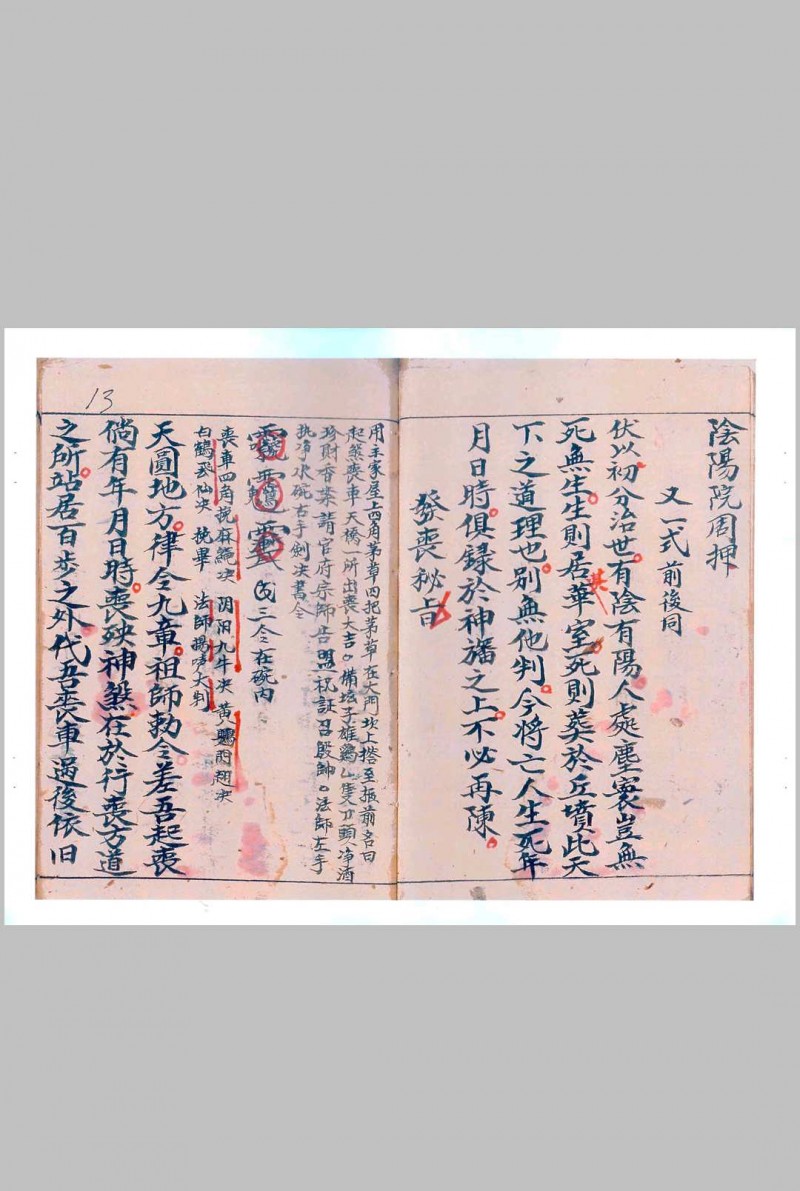 陰陽院周押
又一式前後同
伏以初分治世有陰有陽人處塵寰豈無
死無生生則居華室死則葬於丘墳此天
其
下之道理也別無他判今將亡人生死年
月日時俱録於神旛之上不必再陳
發喪秘旨
用主家屋上四角茅草四把茅草在大門坎上搭至板前名曰
起煞喪車天橋一所出喪大吉備坛子雄鷄一隻刀頭净酒
珍財香案請官府宗師告盟祝証召殷帥法師左手
执净水碗右手劍决書令
三令在碗内
喪車四角挽麻䋲决 阴阳九牛决 黄鷂閃翅决
白鶴飛仙决 挽畢 法師揚声大判
天圓地方律令九章祖師勅令差吾起喪
倘有年月日時喪殃神煞在於行喪方道
之所站居百步之外代吾喪車過後依旧
13